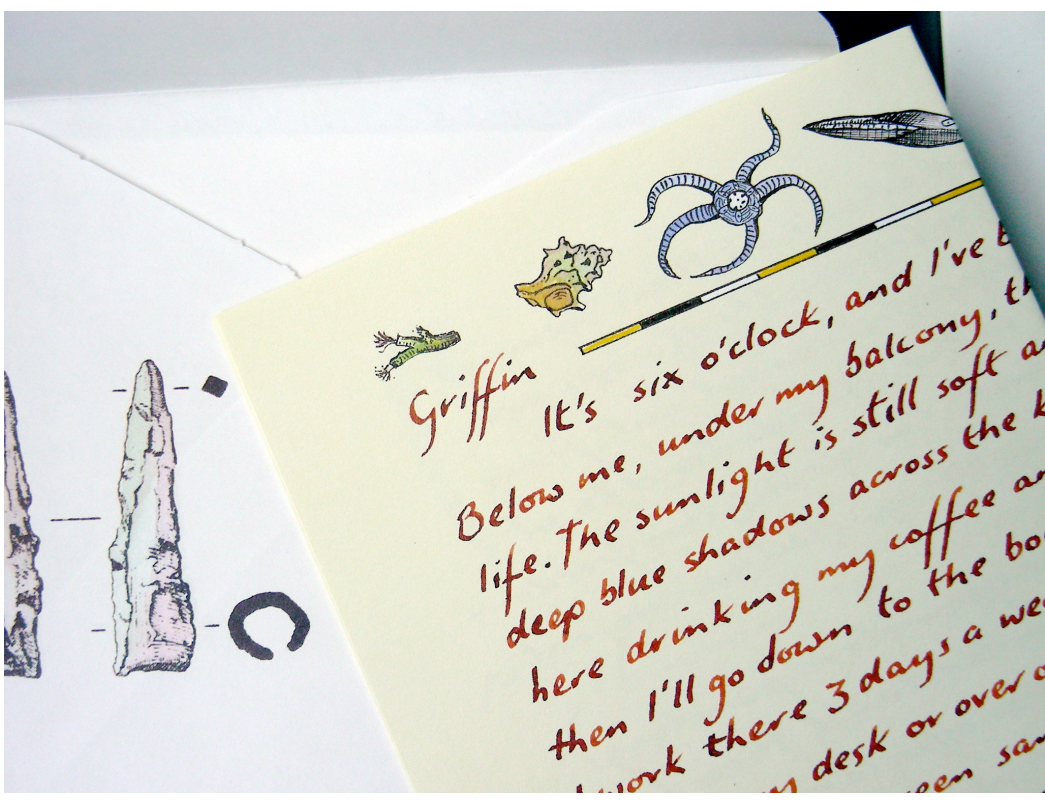 Griffin
It's six o'clock, and I've
Below me, under my balcony,
life. The sunlight is still soft
deep blue shadows across the
here drinking my coffee
then I'll go down to the
work there 3 days a
desk or over